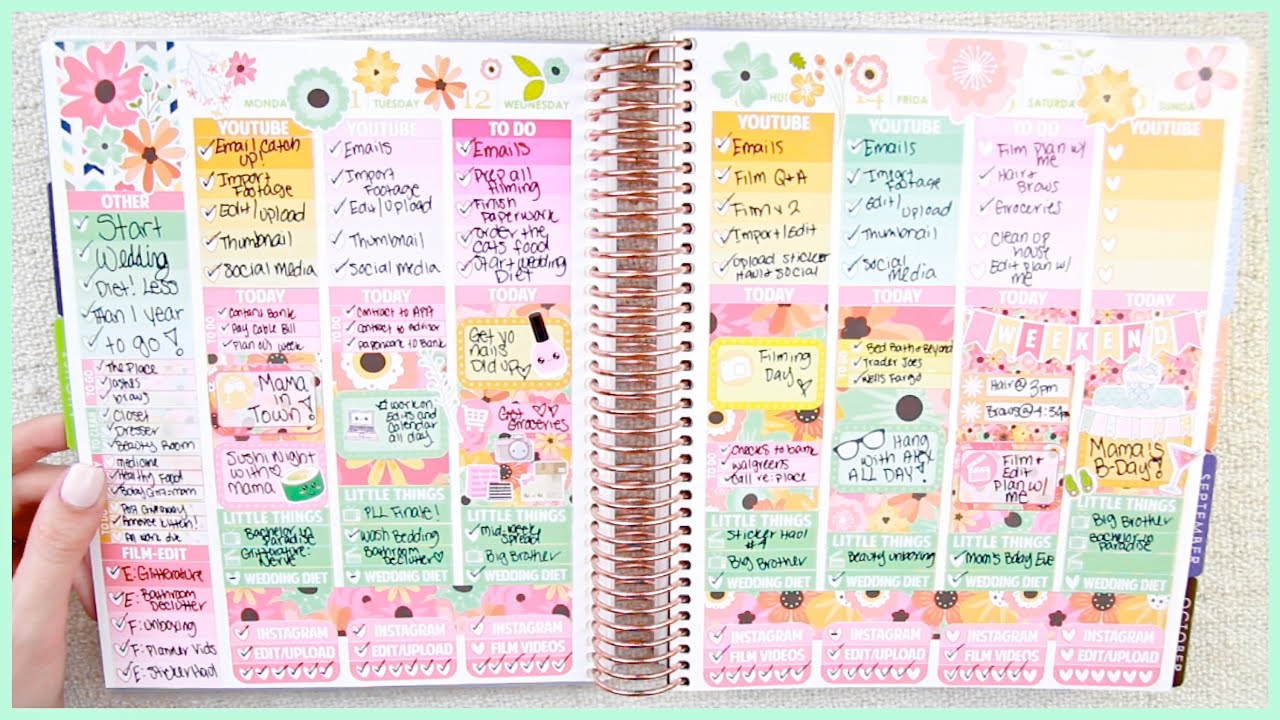 MONDAY
TUESDAY
12
WEDNESDAY
OTHER
Start
Wedding
Diet! Less
than 1 year
to go!
The Place
Lashes
Brows
Closet
Dresser
Beauty Room
medicine
Healthy Food
Post Giveaway
FILM-EDIT
E: Glitterature
E: Bathroom
Declutter
F: Unboxing
F: Planner Vids
E: Sticker Haul
YOUTUBE
Email Catch
up!
Import
Footage
Edit/Upload
Thumbnail
Social Media
TODAY
TO DO
Content Bank
Pay Cable Bill
Plan out week
Mama
in
Town!
Sushi Night
with
mama
LITTLE THINGS
Bachelor in
Paradise
Glitterature:
Nerve
WEDDING DIET
INSTAGRAM
EDIT/UPLOAD
YOUTUBE
Emails
Import
Footage
Edit/Upload
Thumbnail
Social Media
TODAY
Contract to APA
Contract to
Paperwork to Bank
work on
Edits and
calendar
all day
LITTLE THINGS
PLL Finale!
Wash Bedding
Bathroom
Declutter
WEDDING DIET
INSTAGRAM
EDIT/UPLOAD
TO DO
Emails
Prep all
filming
Finish
paperwork
Order the
cats food
Start wedding
Diet
TODAY
Get yo
nails
Did up
Get
Groceries
LITTLE THINGS
mid-week
spread
Big Brother
WEDDING DIET
INSTAGRAM
FILM VIDEOS
14
FRIDAY
SATURDAY
SUNDA
YOUTUBE
Emails
Film Q+A
Film v 2
Import/Edit
Upload sticker
Haul + social
TODAY
Filming
Day
TO DO
Checks to bank
Walgreens
Call re: place
LITTLE THINGS
Sticker Haul
#4
Big Brother
WEDDING DIET
INSTAGRAM
FILM VIDEOS
YOUTUBE
Emails
Import
Footage
Edit/
Upload
Thumbnail
Social
media
TODAY
TO GO
Bed Bath + Beyond
Trader Joes
Wells Fargo
Hang
with Alex
ALL DAY!
LITTLE THINGS
Beauty Unboxing
WEDDING DIET
INSTAGRAM
EDIT/UPLOAD
TO DO
Film plan w/
me
Hair +
Brows
Groceries
Clean up
house
Edit plan w/
me
TODAY
WEEKEND
Hair @ 3pm
Brows @ 4:30pm
Film +
Edit
Plan w/
me
LITTLE THINGS
Mom's Bday Eve
WEDDING DIET
INSTAGRAM
FILM VIDEOS
YOUTUBE
TODAY
Mama's
B-Day!
LITTLE THINGS
Big Brother
Bachelor in
Paradise
WEDDING DIET
INSTAGRAM
EDIT/UPLOAD
SEPTEMBER
OCTOBER